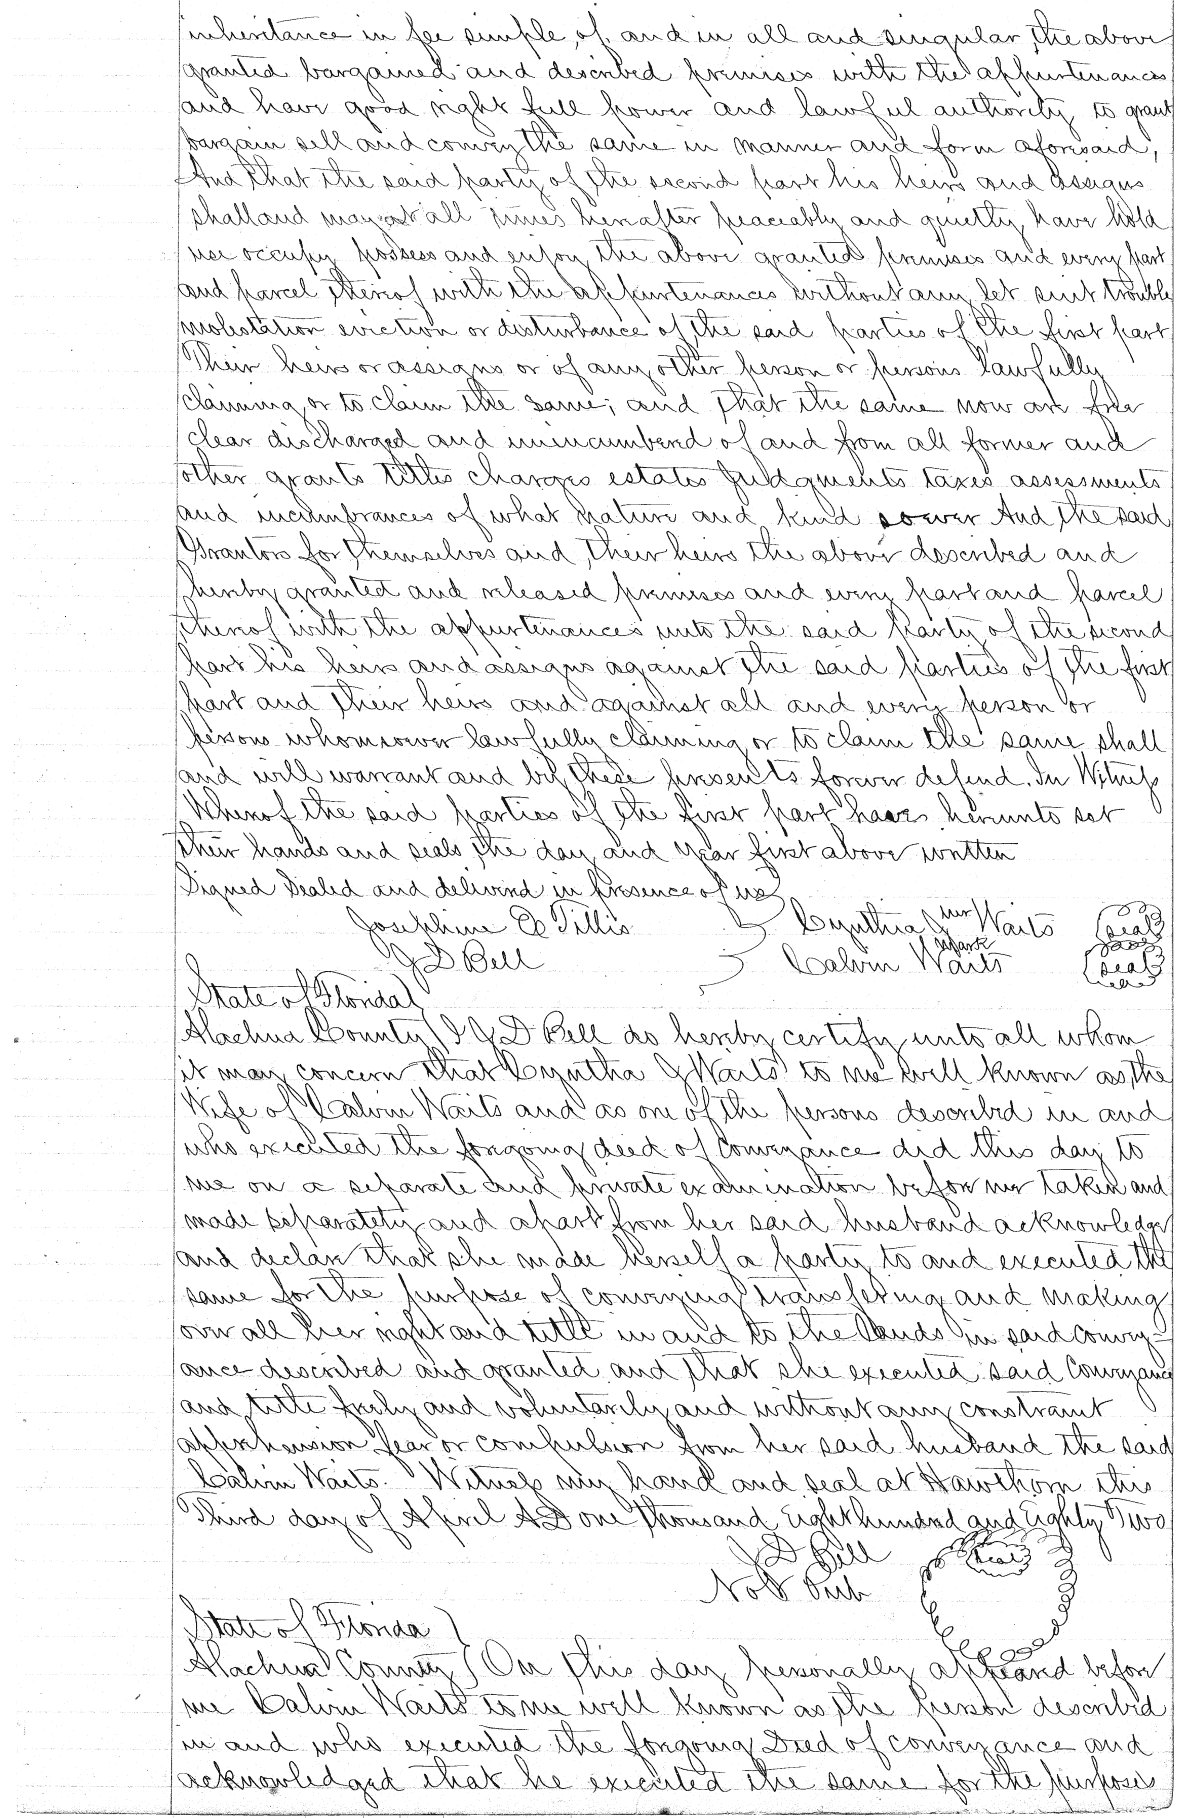 inheritance in fee simple, of, and in all and singular the above
granted bargained and described premises with the appurtenances
and have good right full power and lawful authority to grant
bargain sell and convey the same in manner and form aforesaid,
And that the said party of the second part his heirs and assigns
shall and may at all times hereafter peaceably and quietly have hold
use occupy possess and enjoy the above granted premises and every part
and parcel thereof with the appurtenances without any let suit trouble
molestation eviction or disturbance of the said parties of the first part
Their heirs or assigns or of any other person or persons lawfully
claiming or to claim the same; and that the same now are free
clear discharged and unincumbered of and from all former and
other grants titles charges estates Judgments taxes assessments
and incumbrances of what nature and kind soever And the said
Grantors for themselves and their heirs the above described and
hereby granted and released premises and every part and parcel
thereof with the appurtenances unto the said Party of the second
part his heirs and assigns against the said parties of the first
part and their heirs and against all and every person or
persons whomsoever lawfully claiming or to claim the same shall
and will warrant and by these presents forever defend. In Witness
Whereof the said parties of the first part have hereunto set
their hands and seals the day and year first above written
Signed Sealed and delivered in Presence of us
Josephine E Tillis Cynthia J her Waits seal
J D Bell Calvin mark Waits seal
State of Florida
Alachua County I J D Bell do hereby certify unto all whom
it may concern that Cyntha J Waits to me well known as the
Wife of Calvin Waits and as one of the persons described in and
who executed the foregoing deed of Conveyance did this day to
me on a separate and private examination before me taken and
made separately and apart from her said husband acknowledge
and declare that she made herself a party to and executed the
same for the purpose of conveying transfering and making
over all her right and title in and to the Lands in said convey-
ance described and granted and that she executed said Conveyance
and title freely and voluntarily and without any constraint
apprehension fear or compulsion from her said husband the said
Calvin Waits. Witness my hand and seal at Hawthorn this
Third day of April AD one Thousand Eight hundred and Eighty Two
J D Bell seal
Not Pub
State of Florida
Alachua County On this day personally appeared before
me Calvin Waits to me well known as the person described
in and who executed the foregoing Deed of conveyance and
acknowledged that he executed the same for the purposes